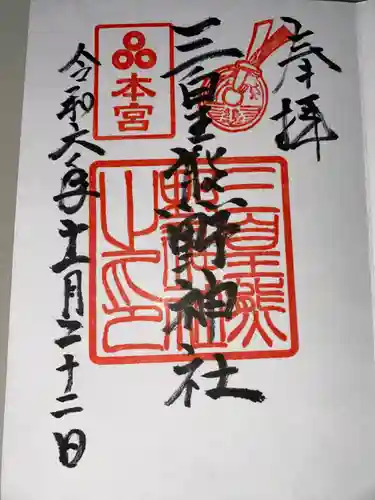 奉拝
三皇熊野神社
本宮
令和六年十一月二十二日
三皇熊
野神社
之印